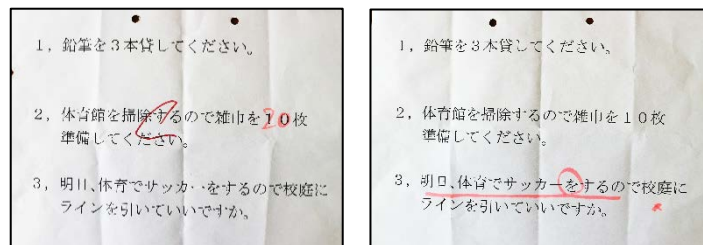 1，鉛筆を3本貸してください。
2，体育館を掃除するので雑巾を10枚
20
準備してください。
3，明日、体育でサッカーをするので校庭に
ラインを引いていいですか。
1，鉛筆を3本貸してください。
2，体育館を掃除するので雑巾を10枚
準備してください。
3，明日、体育でサッカーをするので校庭に
ラインを引いていいですか。